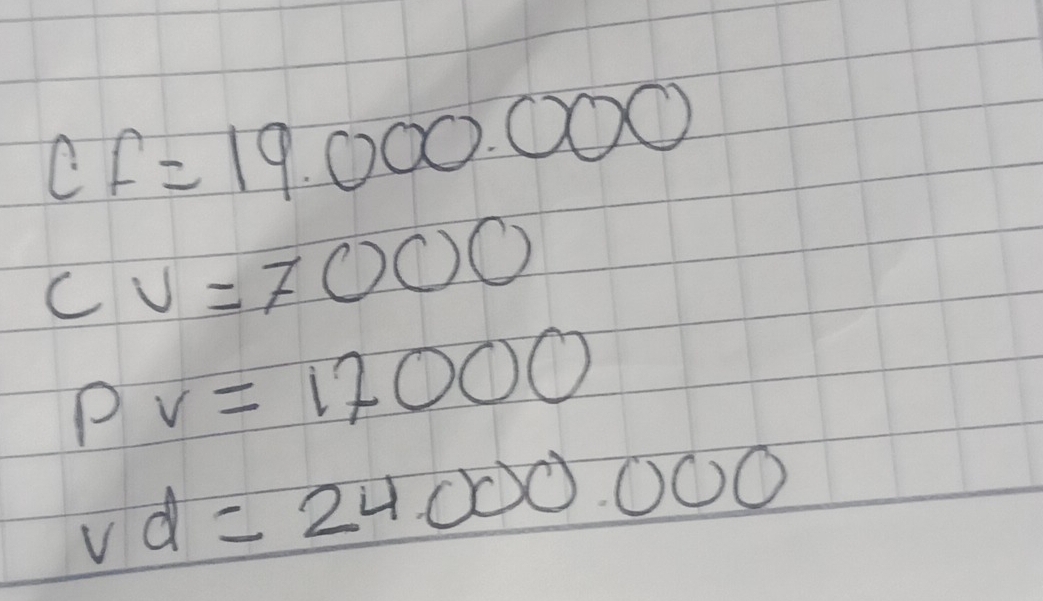 Cf = 19.000.000
CV = 7000
PV = 17000
Vd = 24.000.000